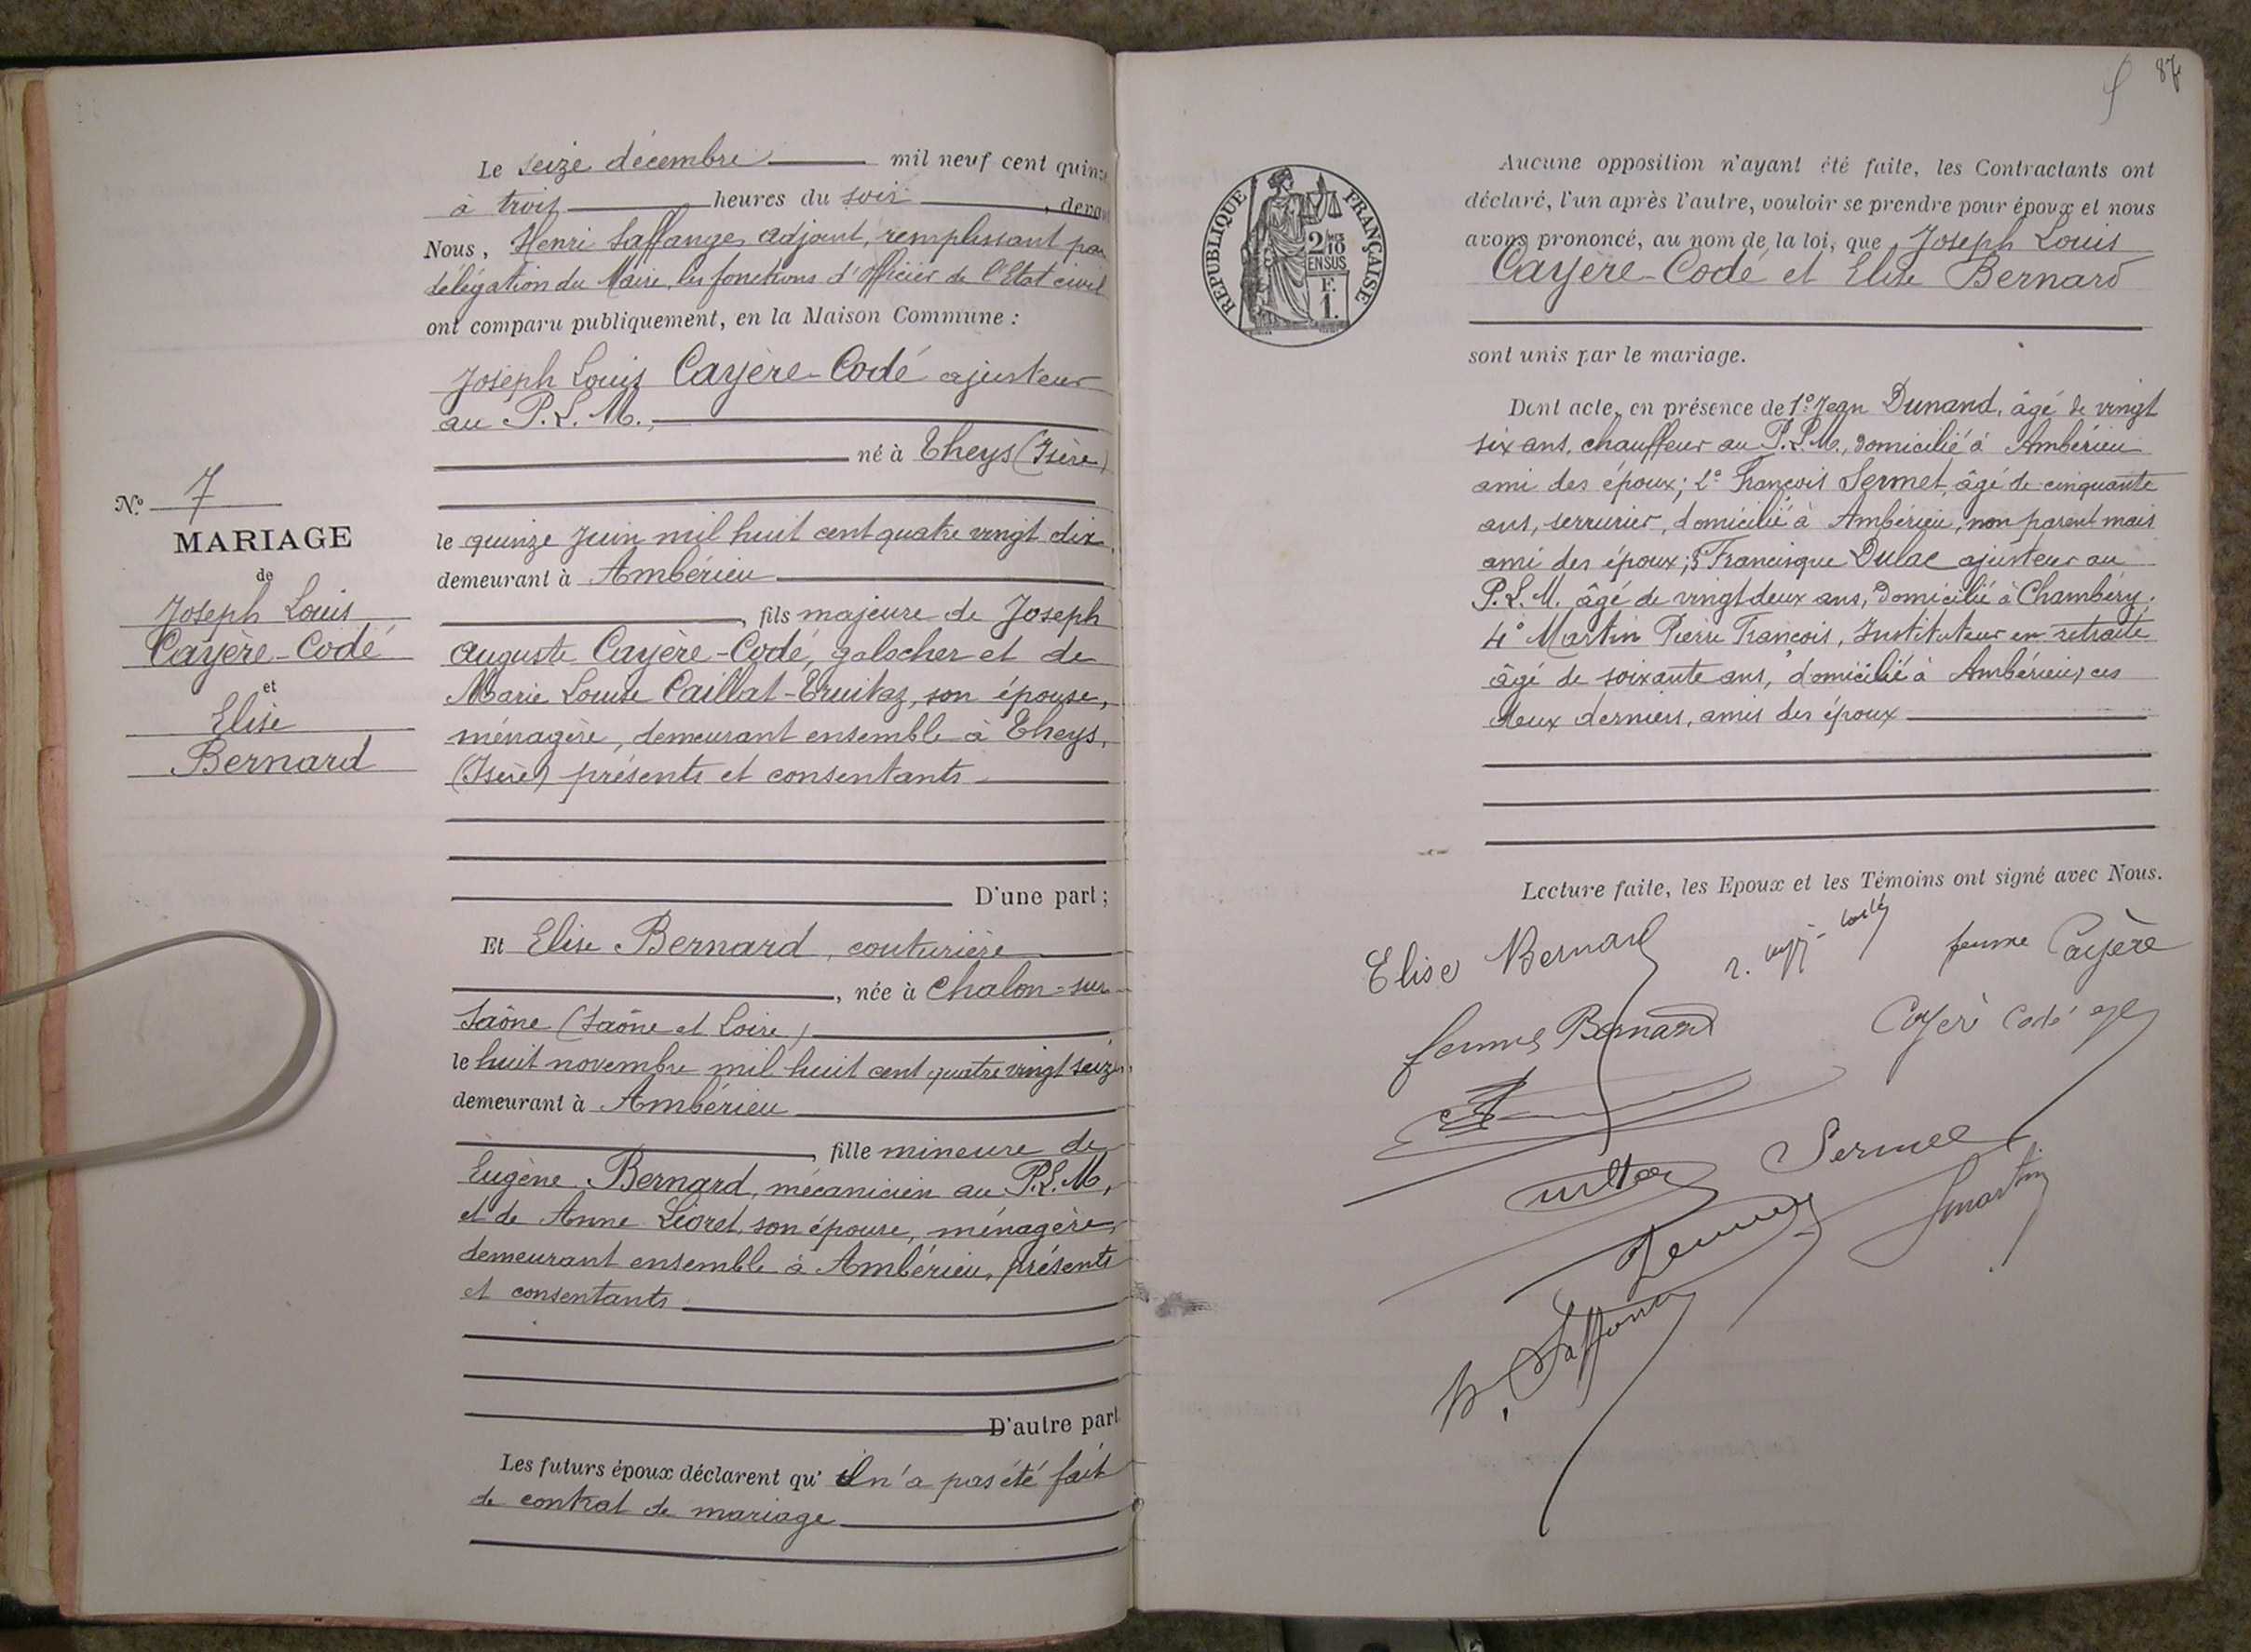 Le seize décembre mil neuf cent quinze
à trois heures du soir, devant
Nous, Henri Laffanges adjoint, remplissant par
délégation du Maire, les fonctions d'officier de l'Etat civil
ont comparu publiquement, en la Maison Commune :
Joseph Louis Cayère-Codé ajusteur
au P.L.M.,
né à Theys (Isère)
le quinze Juin mil huit cent quatre vingt dix,
demeurant à Ambérieu
, fils majeure de Joseph
Auguste Cayère-Codé, galocher et de
Marie Louise Caillat-Truitaz, son épouse,
ménagère, demeurant ensemble à Theys,
(Isère) présents et consentants
D'une part ;
Et Elise Bernard, couturière
, née à Chalon-sur
Saône (Saône et Loire)
le huit novembre mil huit cent quatre vingt seize
demeurant à Ambérieu
, fille mineure de
Eugène Bernard, mécanicien au P.L.M,
et de Anne Lioret, son épouse, ménagère,
demeurant ensemble à Ambérieu, présents
et consentants
D'autre part
Les futurs époux déclarent qu' il n'a pas été fait
de contrat de mariage
N° 7
MARIAGE
de
Joseph Louis
Cayère-Codé
et
Elise
Bernard
87
REPUBLIQUE FRANÇAISE
2/10
EN SUS
F.
1.
Aucune opposition n'ayant été faite, les Contractants ont
déclaré, l'un après l'autre, vouloir se prendre pour époux et nous
avons prononcé, au nom de la loi, que Joseph Louis
Cayère-Codé et Elise Bernard
sont unis par le mariage.
Dont acte, en présence de 1° Jean Dunand, âgé de vingt
six ans, chauffeur au P.L.M., domicilié à Ambérieu
ami des époux; 2° François Sermet, âgé de cinquante
ans, serrurier, domicilié à Ambérieu, non parent mais
ami des époux; 3° Francisque Dulac ajusteur au
P.L.M. âgé de vingt deux ans, domicilié à Chambéry;
4° Martin Pierre François, Instituteur en retraite
âgé de soixante ans, domicilié à Ambérieu, ces
deux derniers, amis des époux
Lecture faite, les Epoux et les Témoins ont signé avec Nous.
Elise Bernard
femme Cayère
femme Bernard
Cayère Codé
Sermet
Martin
H. Laffanges